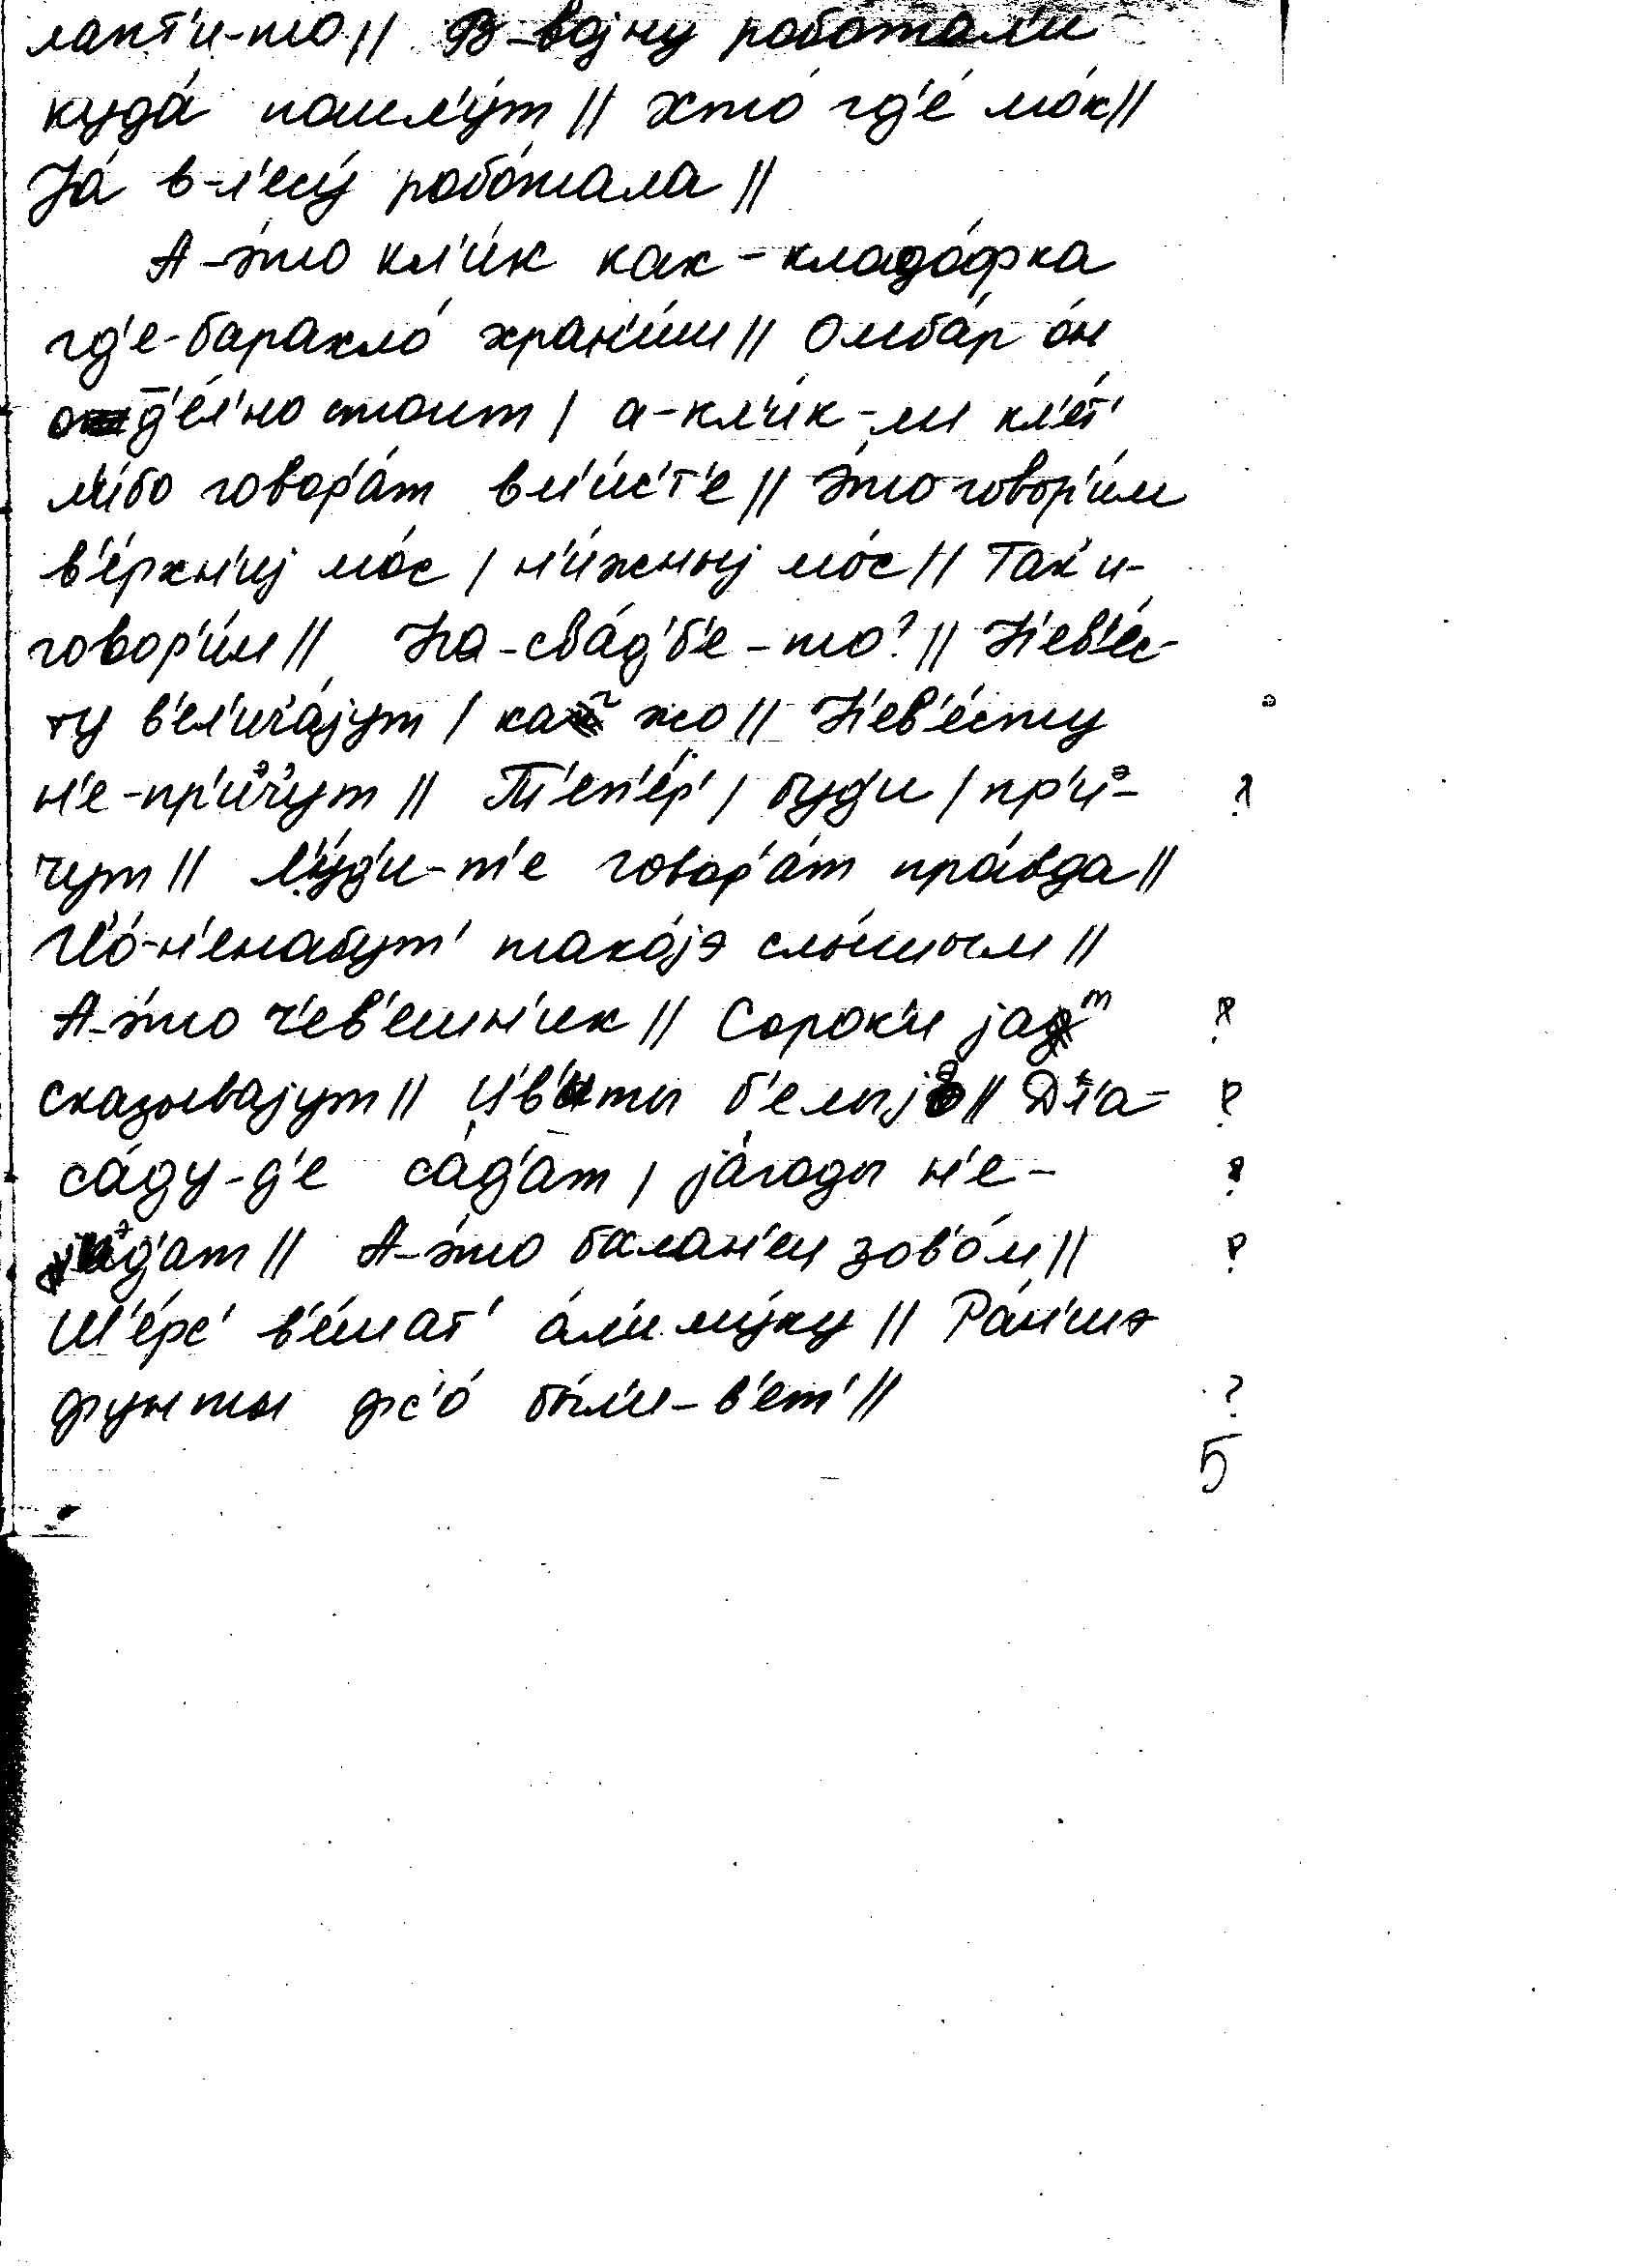 лапт'и-то || В-војну робо́тал'и
куда́ пошл'у́т || хто́ гд'е́ мо́к ||
Ја́ в-л'есу́ робо́тала ||
А-э́то кл'и́к как-кладо́фка
гд'е-барахло́ хран'и́ш || Омба́р о́н
од'е́л'но стоит | а-кл'и́к-ли кл'е́т'
л'и́бо говор'а́т вм'и́с'т'е || э́то говор'и́м
в'е́рхн'иј мо́с | н'и́жныј мо́с || Так'и-
говор'и́м || На-сва́д'б'е-то? || Н'ев'е́с-
ту в'ел'ич'а́јут | как жо || Н'ев'е́сту
н'е-пр'иэч'ут || Т'еп'е́р' | буд'и | пр'иэ-
чут || л'у́д'и-т'е говор'а́т пра́вда ||
Ч'о́-н'енабут' тако́јэ слы́шым ||
А-э́то ч'ев'ешн'ик || Сорок'и јат ?
сказывајут || Цв'иты б'елыјэ || Дл'а- ?
са́ду-д'е са́д'а́т | ја́годы н'е- ?
јэд'ат || А-э́то балан'ец зов'о́м || ?
Ш'е́рс' в'е́шат' а́л'и му́ку || Ра́н'шэ
фунты фс'о́ бы́л'и-в'ет' || ?
5